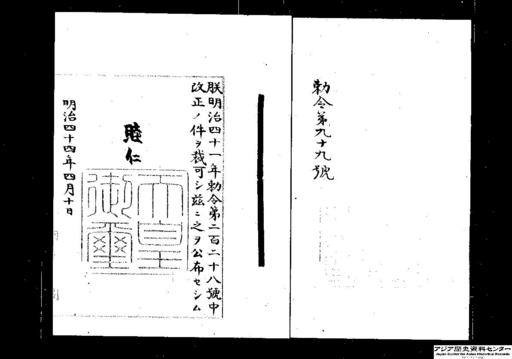 勅令第九十九號
朕明治四十一年勅令第二百二十八號中
改正ノ件ヲ裁可シ茲ニ之ヲ公布セシム
睦仁
天皇
御璽
明治四十四年四月十日
アジア歴史資料センター
Japan Center for Asian Historical Records